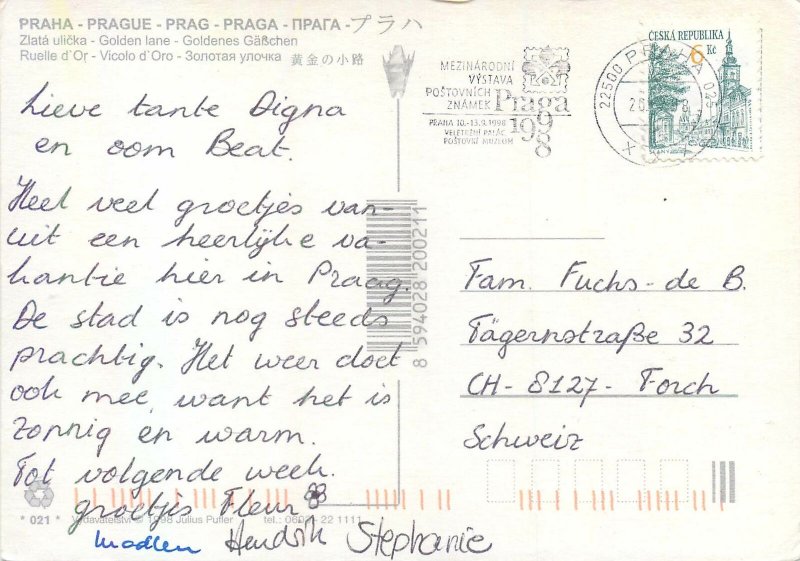 PRAHA - PRAGUE - PRAG - PRAGA - ПРАГА - プラハ
Zlatá ulička - Golden lane - Goldenes Gäßchen
Ruelle d`Or - Vicolo d`Oro - Золотая улочка 黄金の小路
Lieve tante Digna
en oom Beat.
Heel veel groetjes van-
uit een heerlijke va-
kantie hier in Praag.
De stad is nog steeds
prachtig. Het weer doet
ook mee, want het is
zonnig en warm.
Tot volgende week.
groetjes Fleur
Madlen Hendrik Stephanie
* 021 * Vydavatelství © 1998 Julius Pufler tel.: 0602- 22 1111
8 594028 200211
MEZINÁRODNÍ
VÝSTAVA
POŠTOVNÍCH
ZNÁMEK Praga
1998
PRAHA 10.-13.9.1998
VELETRŽNÍ PALÁC
POŠTOVNÍ MUZEUM
22500 PRAHA 025
ČESKÁ REPUBLIKA
6 Kč
SLANÝ
Fam. Fuchs - de B.
Tägernstraße 32
CH - 8127 - Forch
Schweiz